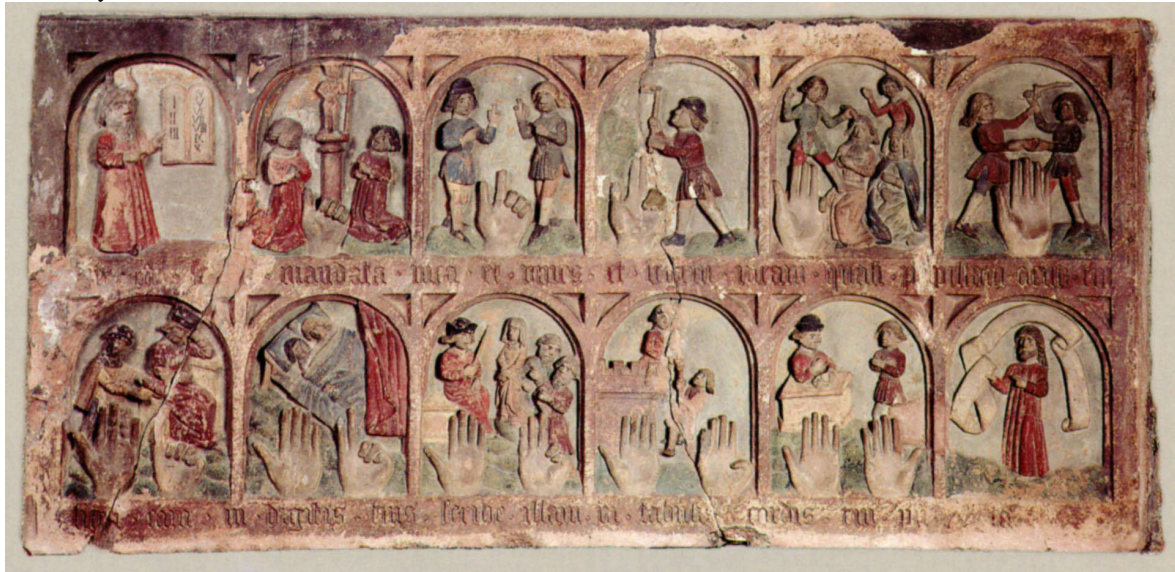 mandata · mea · et · vives · et · legem · meam · quasi · pupillam oculi tui
liga · eam · in · digitis · tuis · scribe illam in · tabulis cordis tui